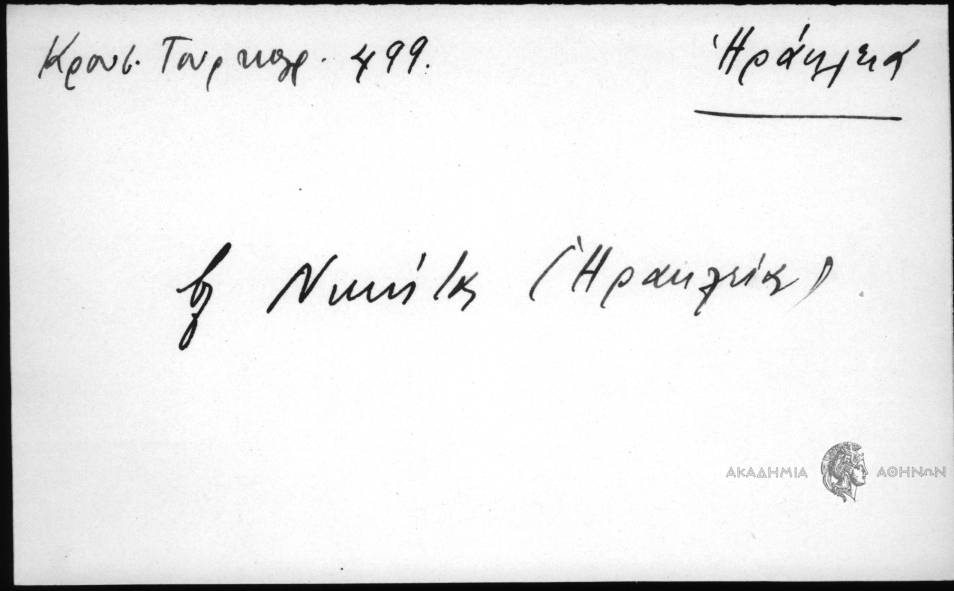 Κρουσ. Τουρκοκρ. 499.
Ἡράκλεια
βλ Νικήτα (Ἡρακλείας)
ΑΚΑΔΗΜΙΑ ΑΘΗΝΩΝ